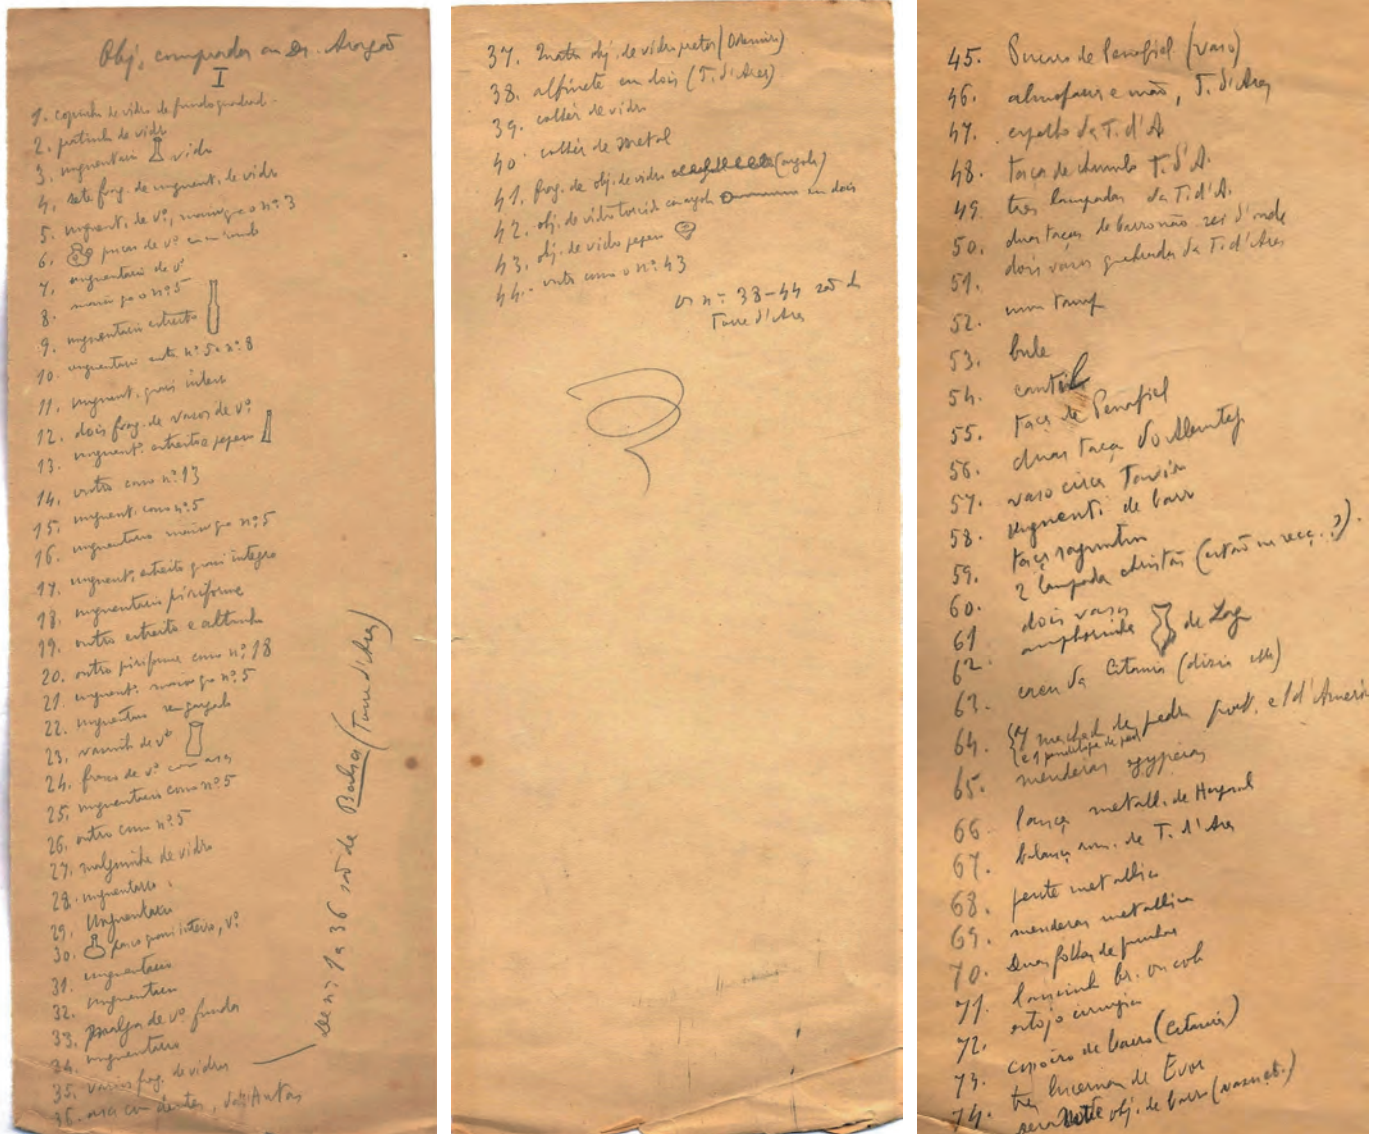 Obj. comprados ao Dr. Aragão
I
1. copinho de vidro de fundo quadrad.
2. pratinho de vidro
3. unguentario vidro
4. sete frag. de unguent. de vidro
5. unguent. de vº, maior qe o nº 3
6. de vº
7. unguentario de vº
8. maior qe o nº 5
9. unguentario estreito
10. unguentario entre nº 5 e nº 8
11. unguent. quasi inteiro
12. dois frag. de vasos de vº
13. unguent. estreito e pequeno
14. outro como nº 13
15. unguent. como nº 5
16. unguentario maior qe nº 5
17. unguent. estreito quasi integro
18. unguentario piriforme
19. outro estreito e altinho
20. outro piriforme como nº 18
21. unguent. maior qe nº 5
22. unguentario sem gargalo
23. vasinho de vº
24. frasco de vº com asas
25. unguentario como nº 5
26. outro como nº 5
27. malguinha de vidro
28. unguentario
29. Unguentario
30. frasco quasi inteiro, vº
31. unguentario
32. unguentario
33. malga de vº funda
34. unguentario
35. varios frag. de vidros
36. asa com dentes,
De nº 1 a 36 são de Balsa (Torre d'Ares)
37. Quatro obj. de vidro pretos
38. alfinete em dois (T. d'Ares)
39. colhér de vidro
40. colhér de metal
41. frag. de obj. de vidro (argola)
42. obj. de vidro torcido com argola em dois
43. obj. de vidro pequeno
44. outro como o nº 43
os nº 38-44 são de
Torre d'Ares
45. Pucaro de Penafiel (vaso)
46. almofariz e mão, T. d'Ares
47. espelho da T. d'A
48. taça de chumbo T. d'A.
49. tres lampadas da T. d'A.
50. duas taças de barro não sei d'onde
51. dois vasos quebrados da T. d'Ares
52. um
53. bule
54. cantil
55. taça de Penafiel
56. duas taças do Alemtejo
57. vaso cerca Tavira
58. unguentº de barro
59. taça saguntina
60. 2 lampadas christãs (estão na secç.?).
61 dois vasos
62. amphorinha de
63. da Citania (dizia elle)
64. 4 machad. de pedra port. e 1 d'America
65. egypcias
66 lança metall. de
67. balança rom. de T. d'Ares
68. pente metallico
69. metallica
70. Duas folhas de punhal
71. br. ou cob
72. estojo cirurgico
73. de barro (Citania)
74. tres lucernas de Evora
obj. de barro